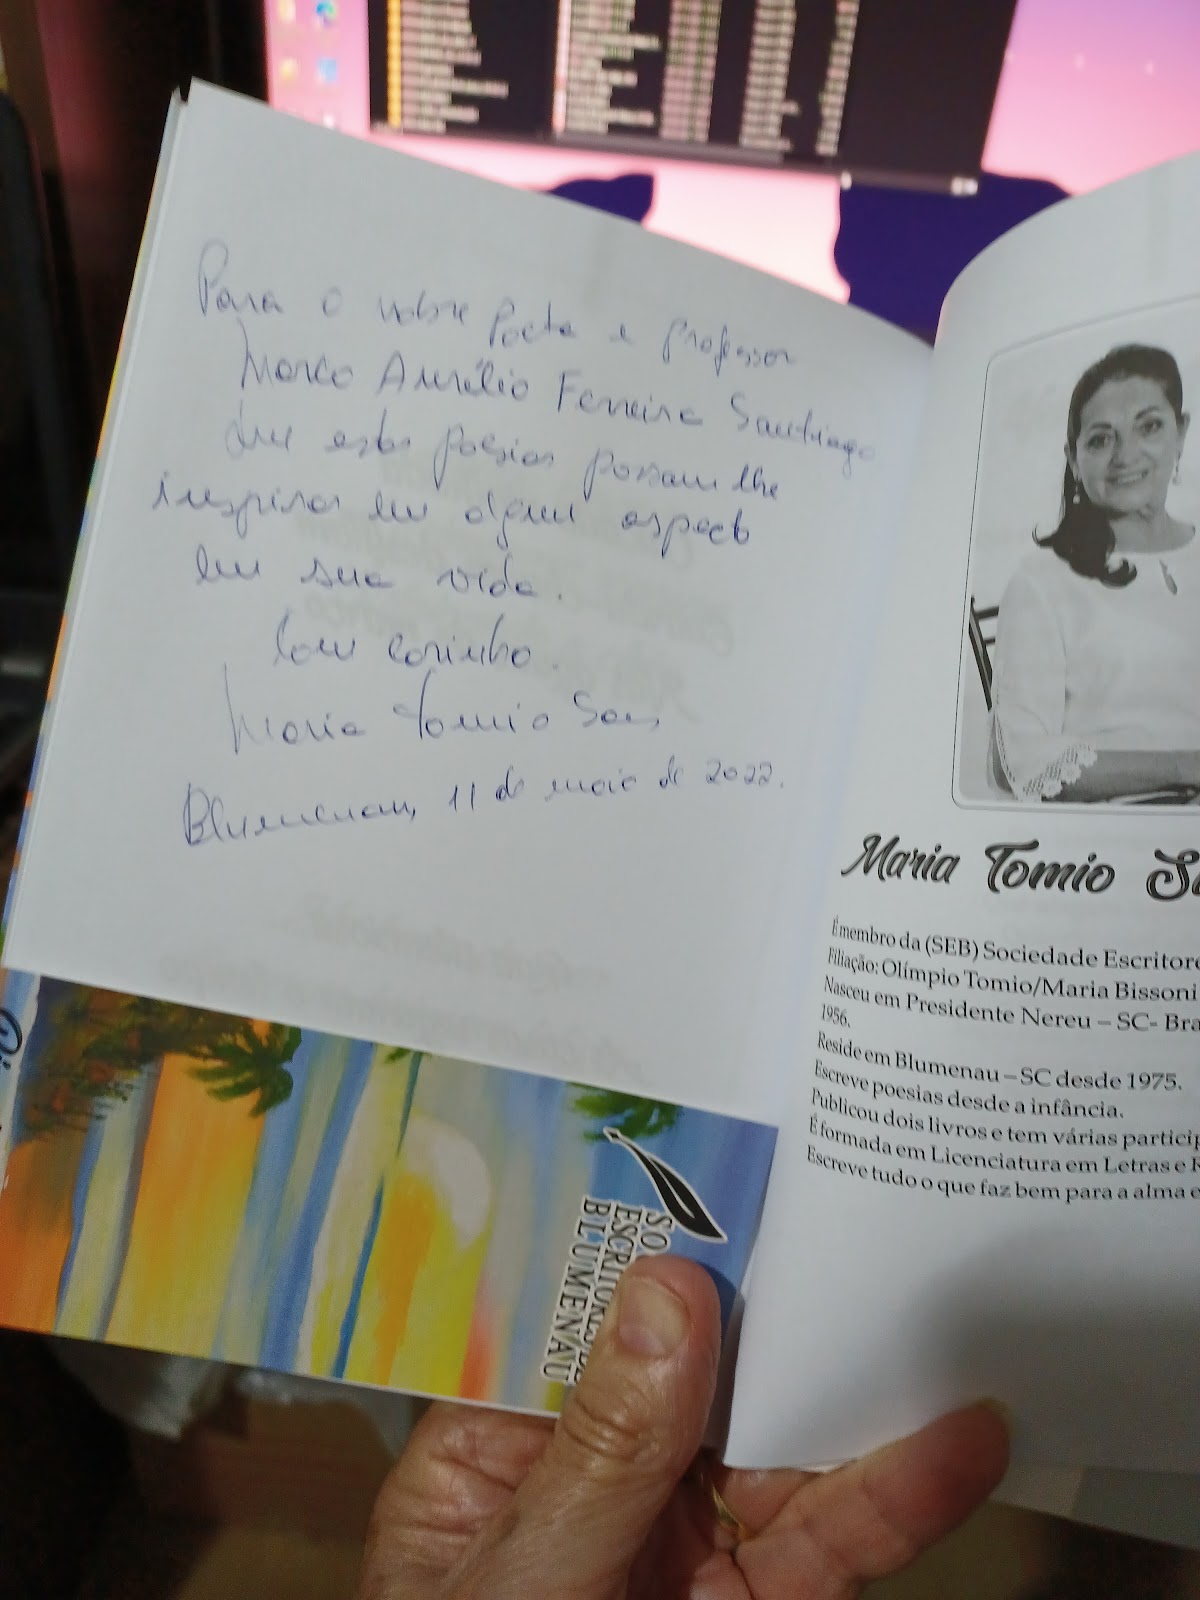 Para o nobre Poeta e professor
Marco Aurélio Ferreira Santiago
Que estas poesias possam lhe
inspirar em algum aspecto
em sua vida.
Com carinho.
Maria Tomio
Blumenau, 11 de maio de 2022.
Maria Tomio
É membro da (SEB) Sociedade
Filiação: Olímpio Tomio/Maria Bissoni
Nasceu em Presidente Nereu – SC-
1956.
Reside em Blumenau – SC desde 1975.
Escreve poesias desde a infância.
Publicou dois livros e tem várias
É formada em Licenciatura em Letras e
Escreve tudo o que faz bem para a alma e
BLUMENAU